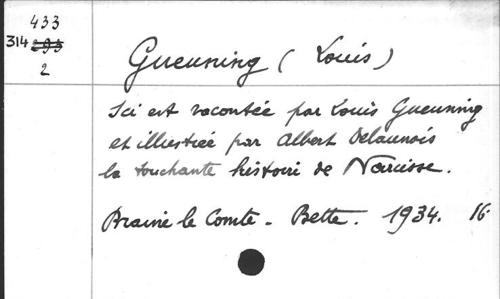 433
314 295
2
Gueuning (Louis)
Ici est racontée par Louis Gueuning
et illustrée par Albert Delaunois
la touchante histoire de Narcisse.
Braine le Comte - Bette. 1934. 16.